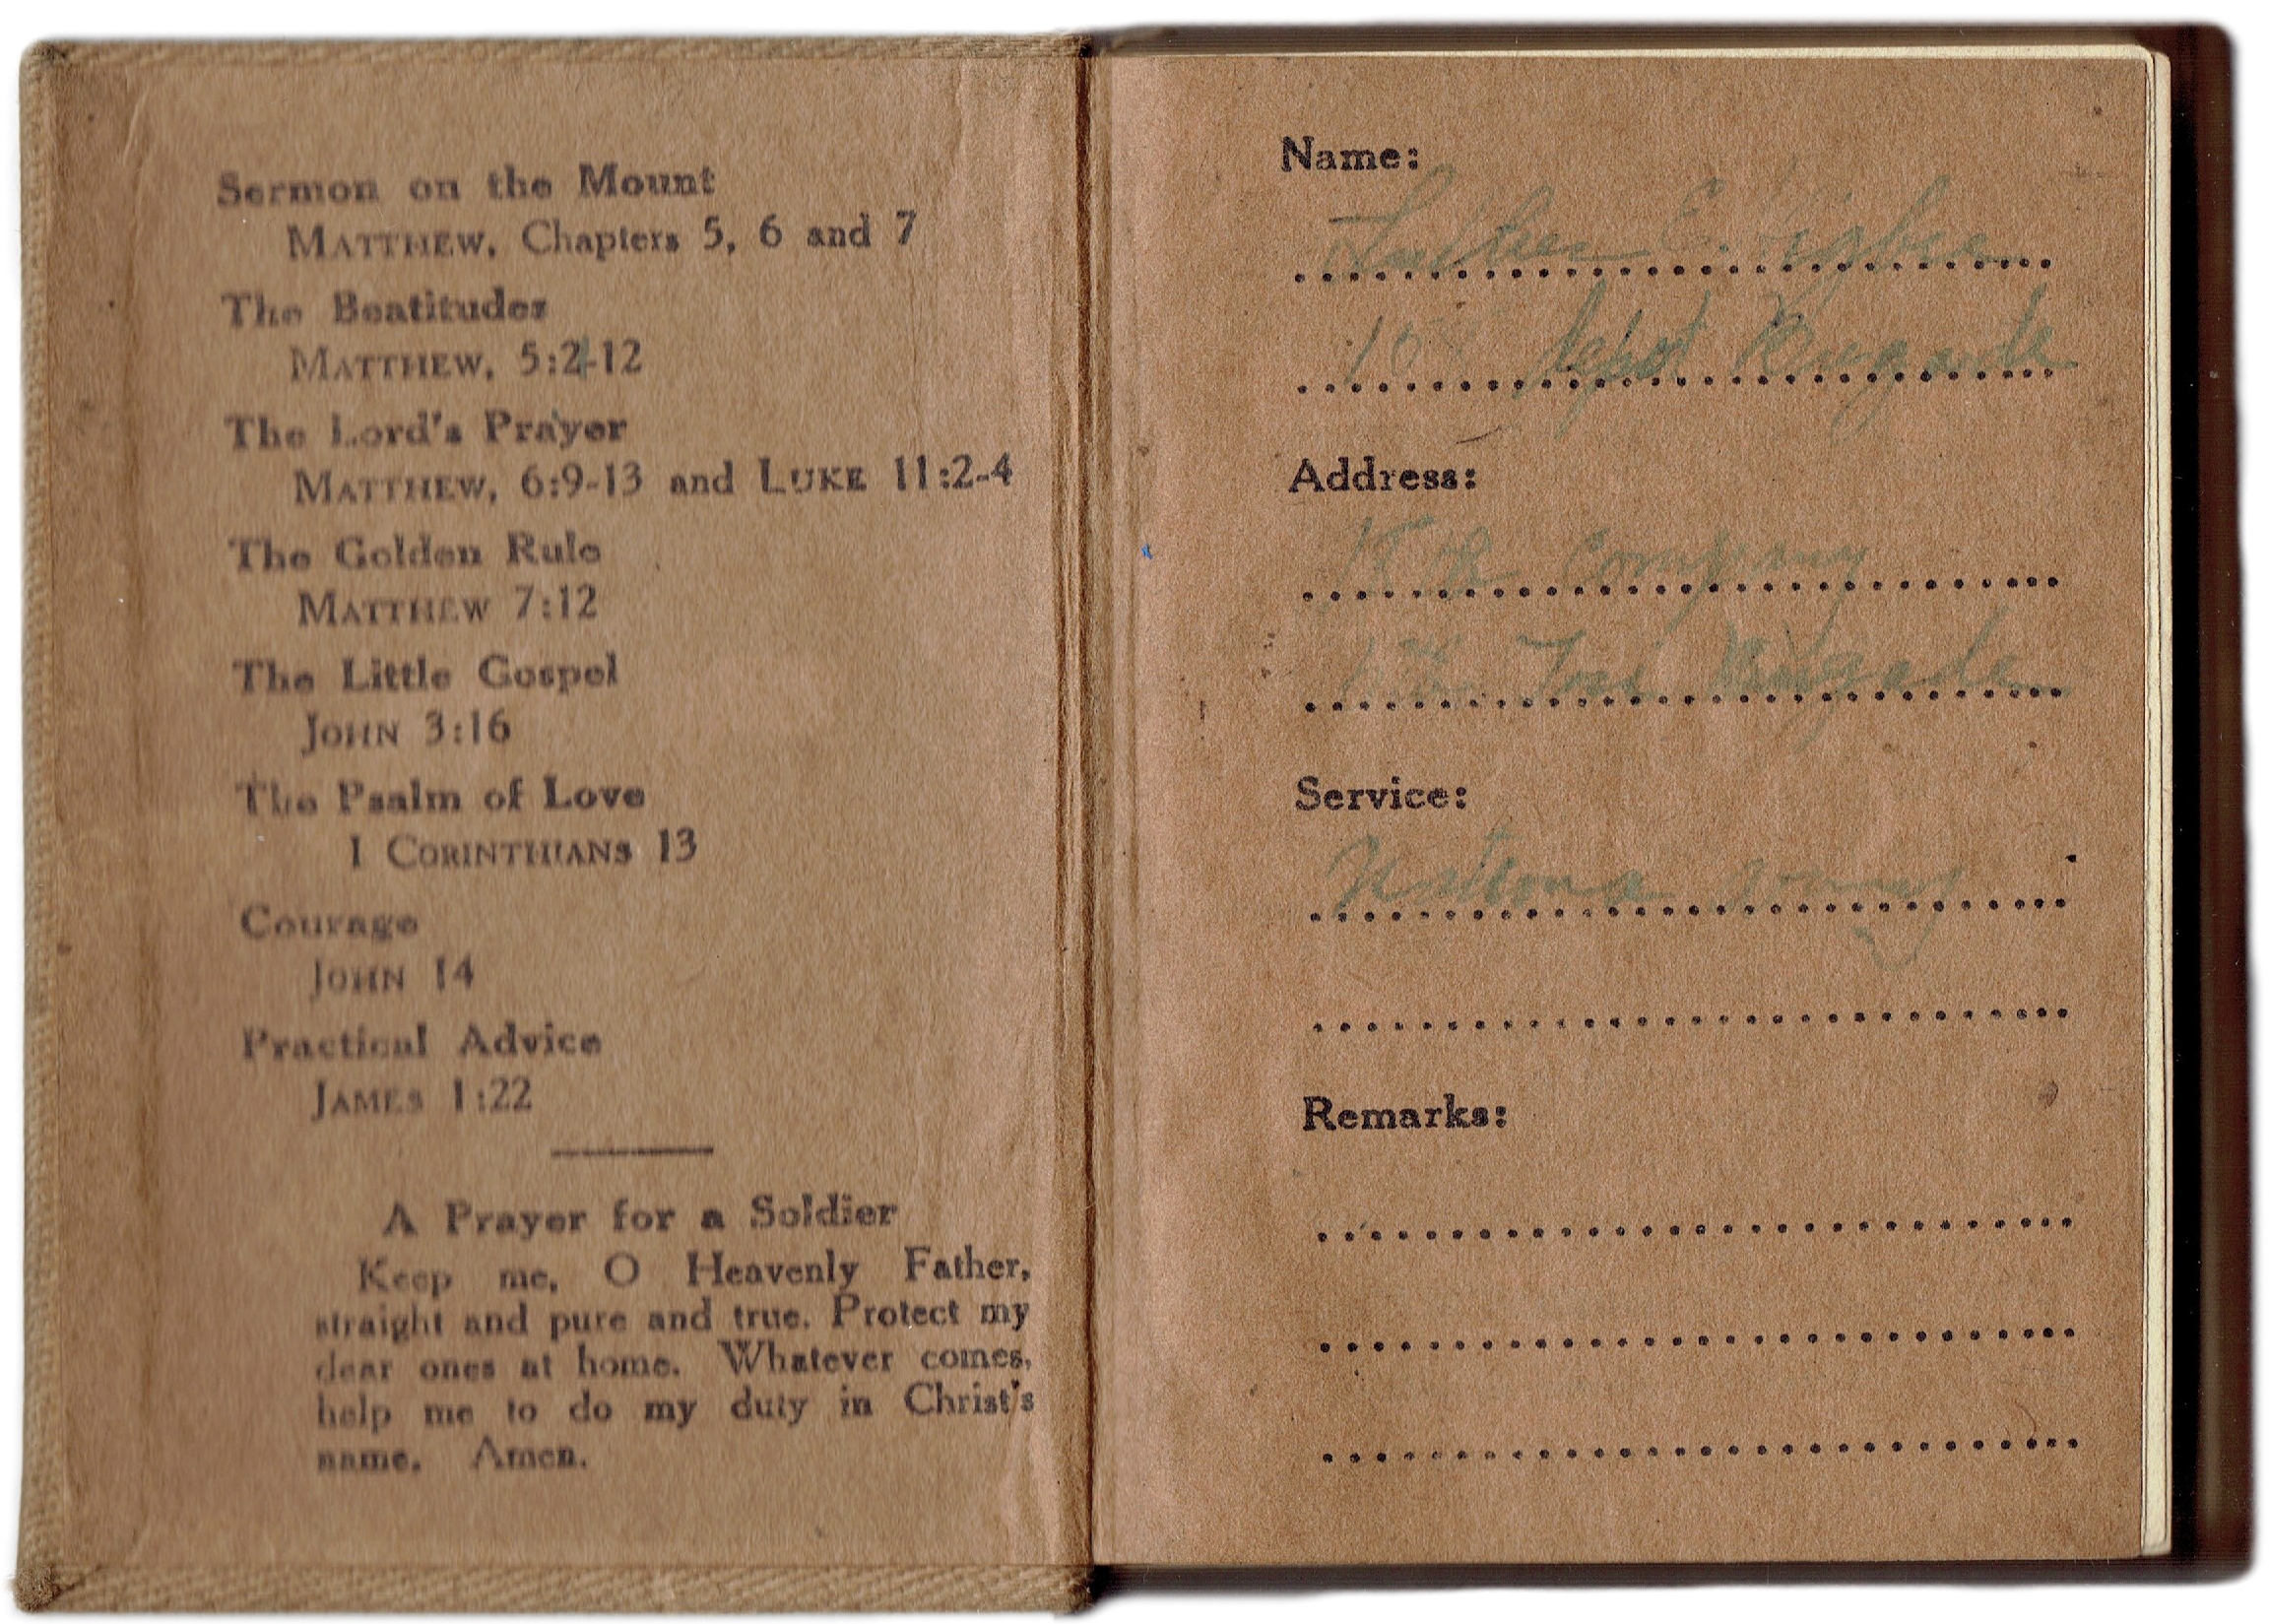 Sermon on the Mount
MATTHEW, Chapters 5, 6 and 7
The Beatitudes
MATTHEW, 5:2-12
The Lord's Prayer
MATTHEW, 6:9-13 and LUKE 11:2-4
The Golden Rule
MATTHEW 7:12
The Little Gospel
JOHN 3:16
The Psalm of Love
I CORINTHIANS 13
Courage
JOHN 14
Practical Advice
JAMES 1:22
A Prayer for a Soldier
Keep me, O Heavenly Father,
straight and pure and true. Protect my
dear ones at home. Whatever comes,
help me to do my duty in Christ's
name. Amen.
Name:
Luther E.
Depot Brigade
Address:
Company
Brigade
Service:
Remarks: